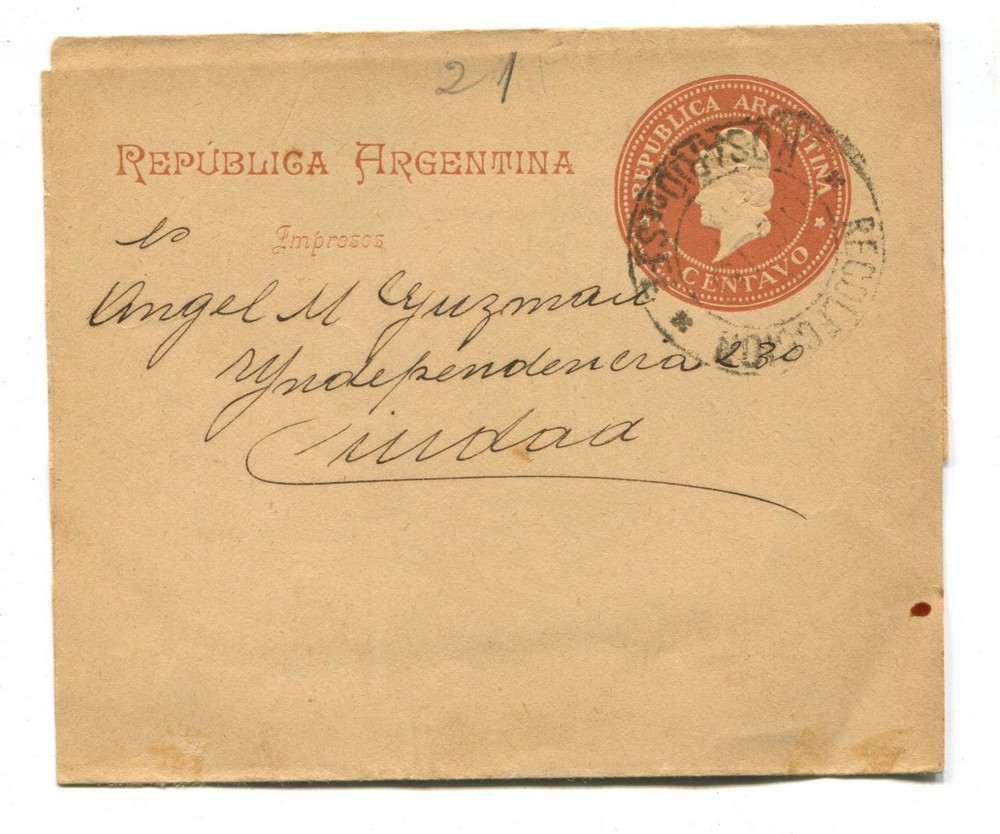 21
REPÚBLICA ARGENTINA
Impresos
REPUBLICA ARGENTINA
CENTAVO
RECOLECCION
Angel M Guzman
Yndependencia 230
Ciudad